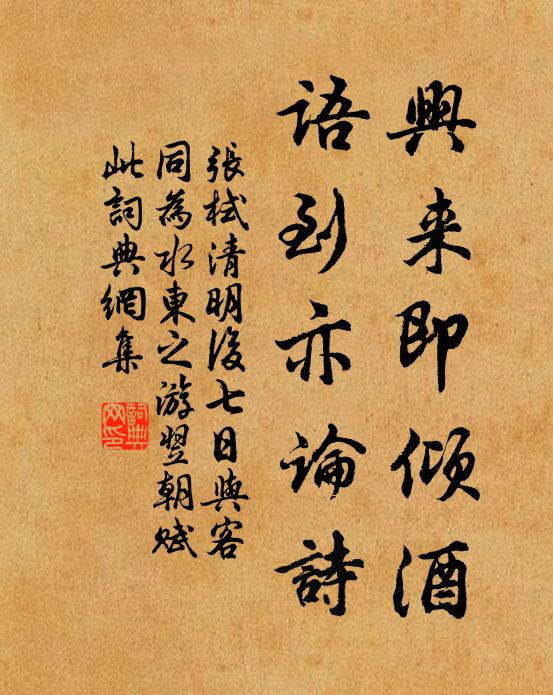 興来即倾酒
語到亦論詩
張栻清明後七日與客
同為水東之游翌朝賦
此詞典網集
詞典網印